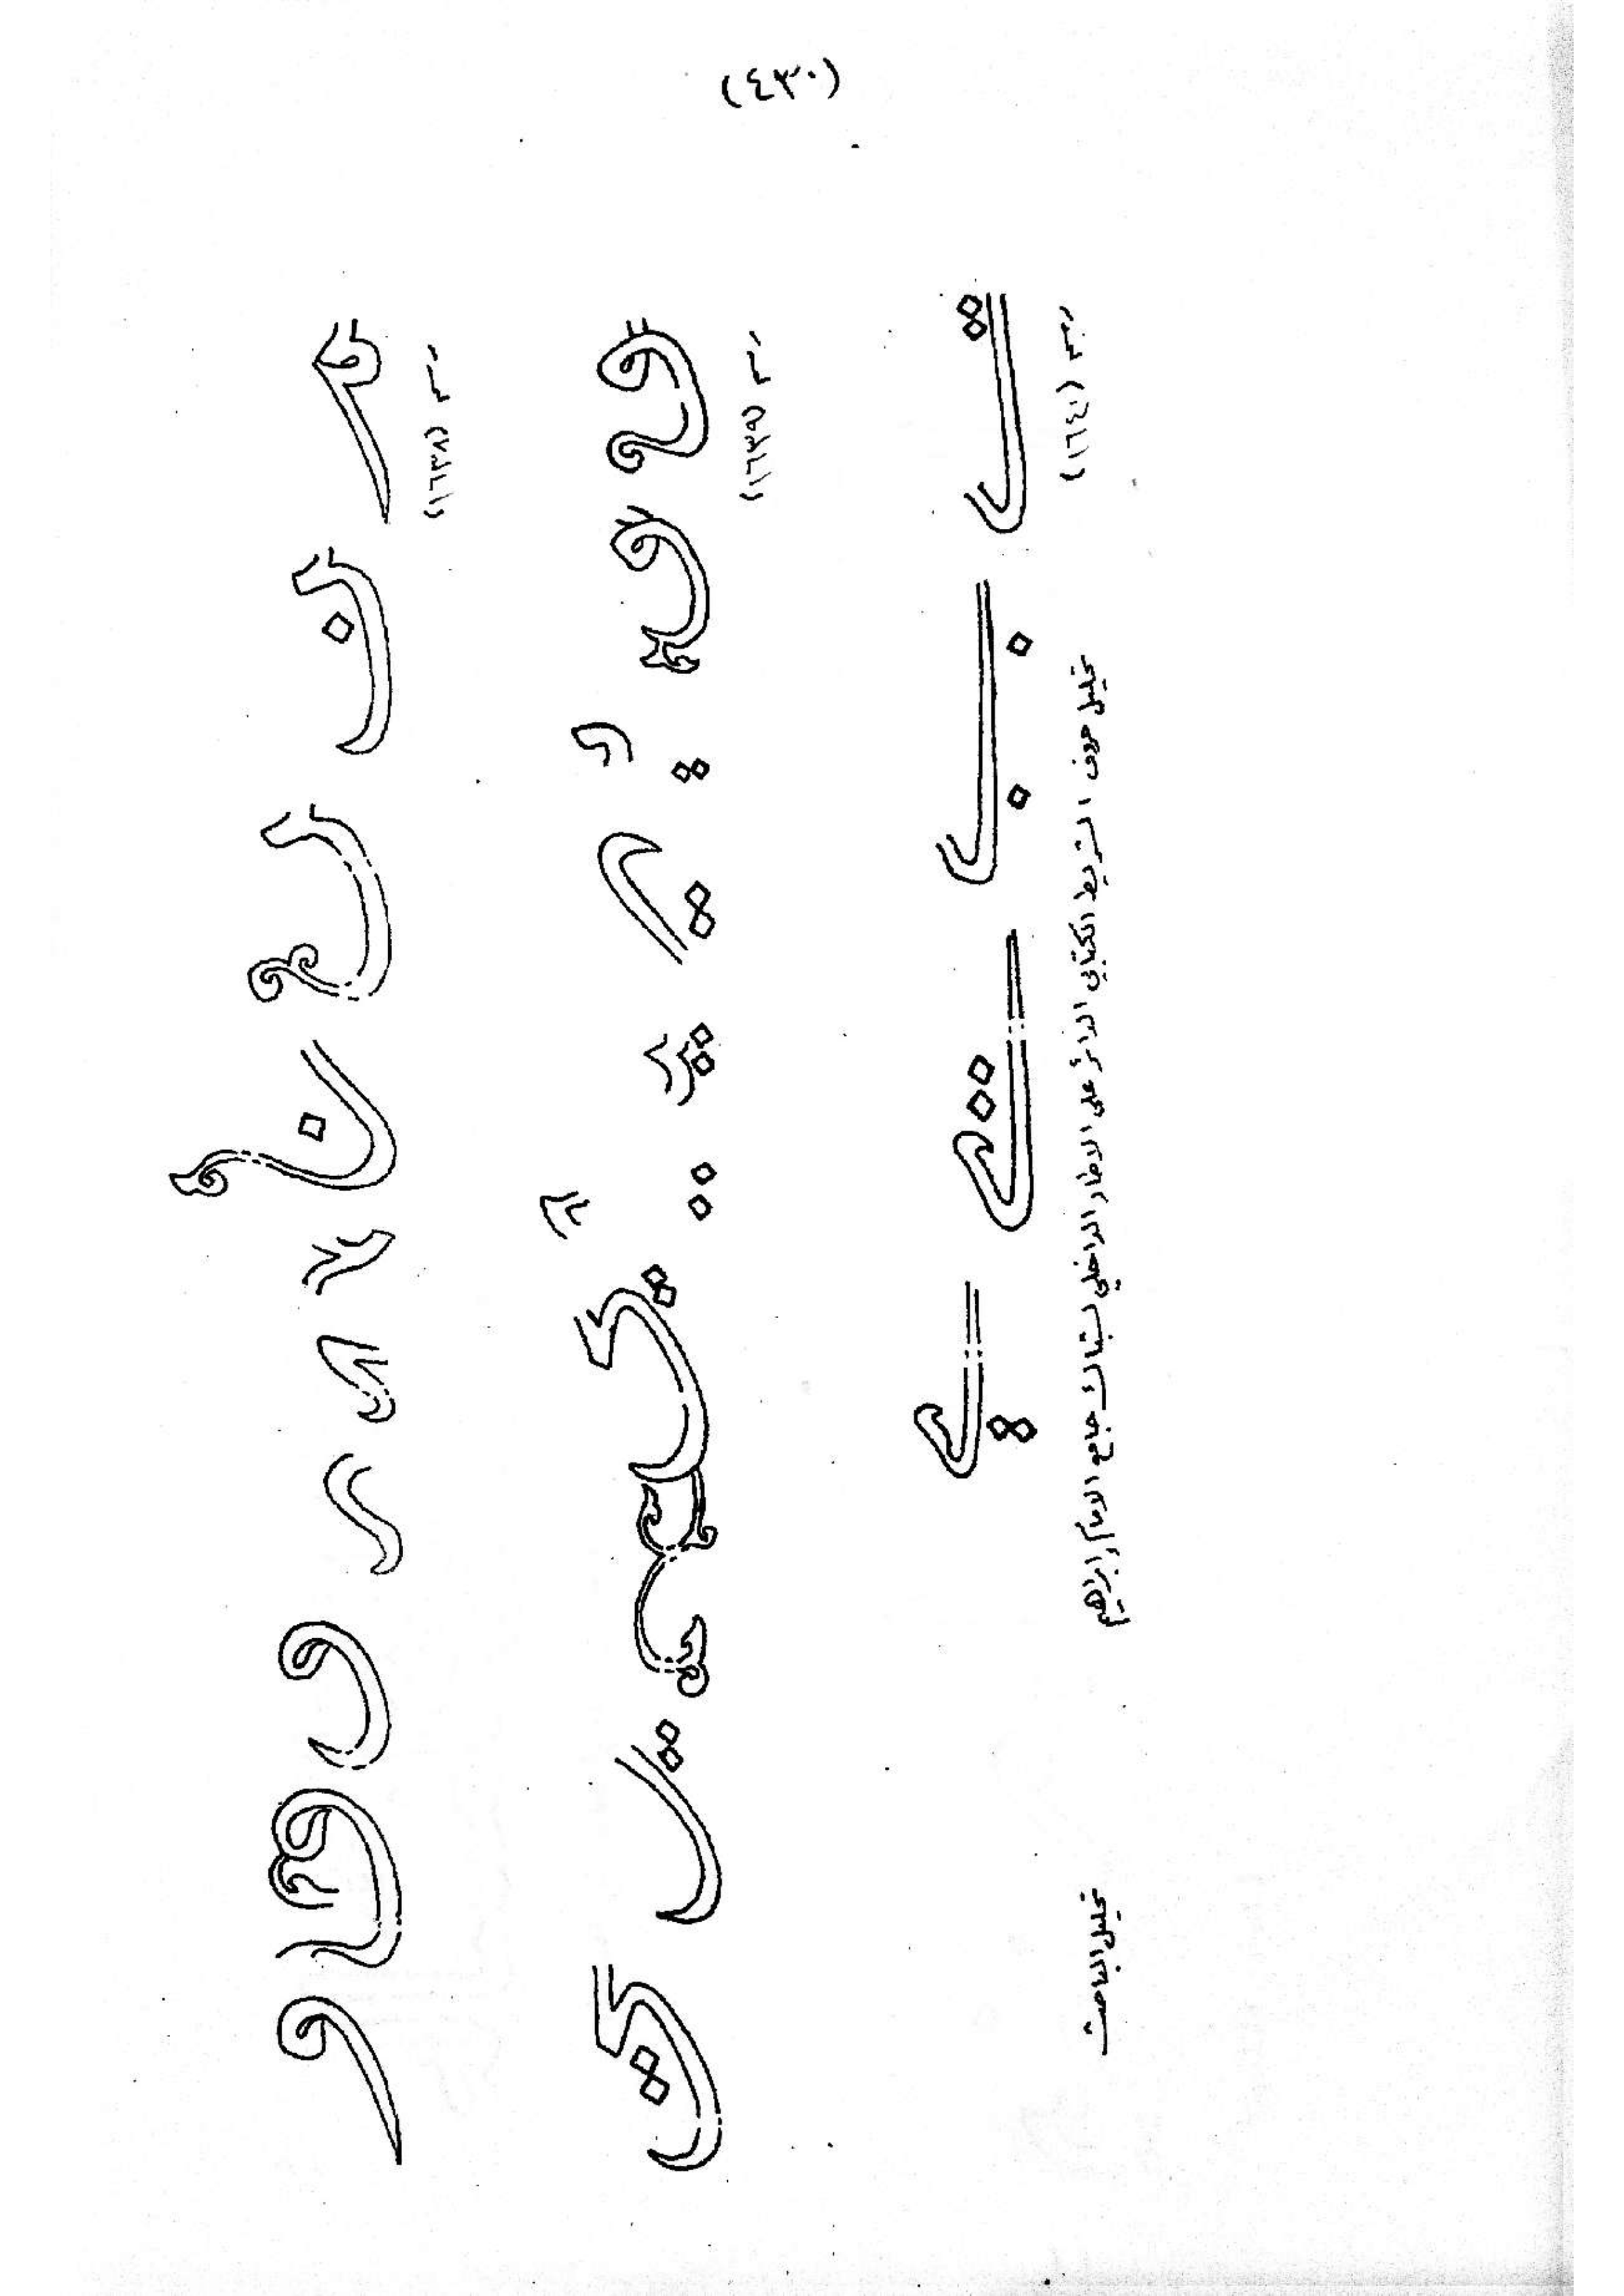 (٤٣٠)
رسم (١٦٣٨)
رسم (١٦٣٩)
رسم (١٦٤١)
تحليل حروف الشريط الكتابي الدائر على الاطار الداخلي لشباك جامع الامام ابراهيم
تحليل الباحث